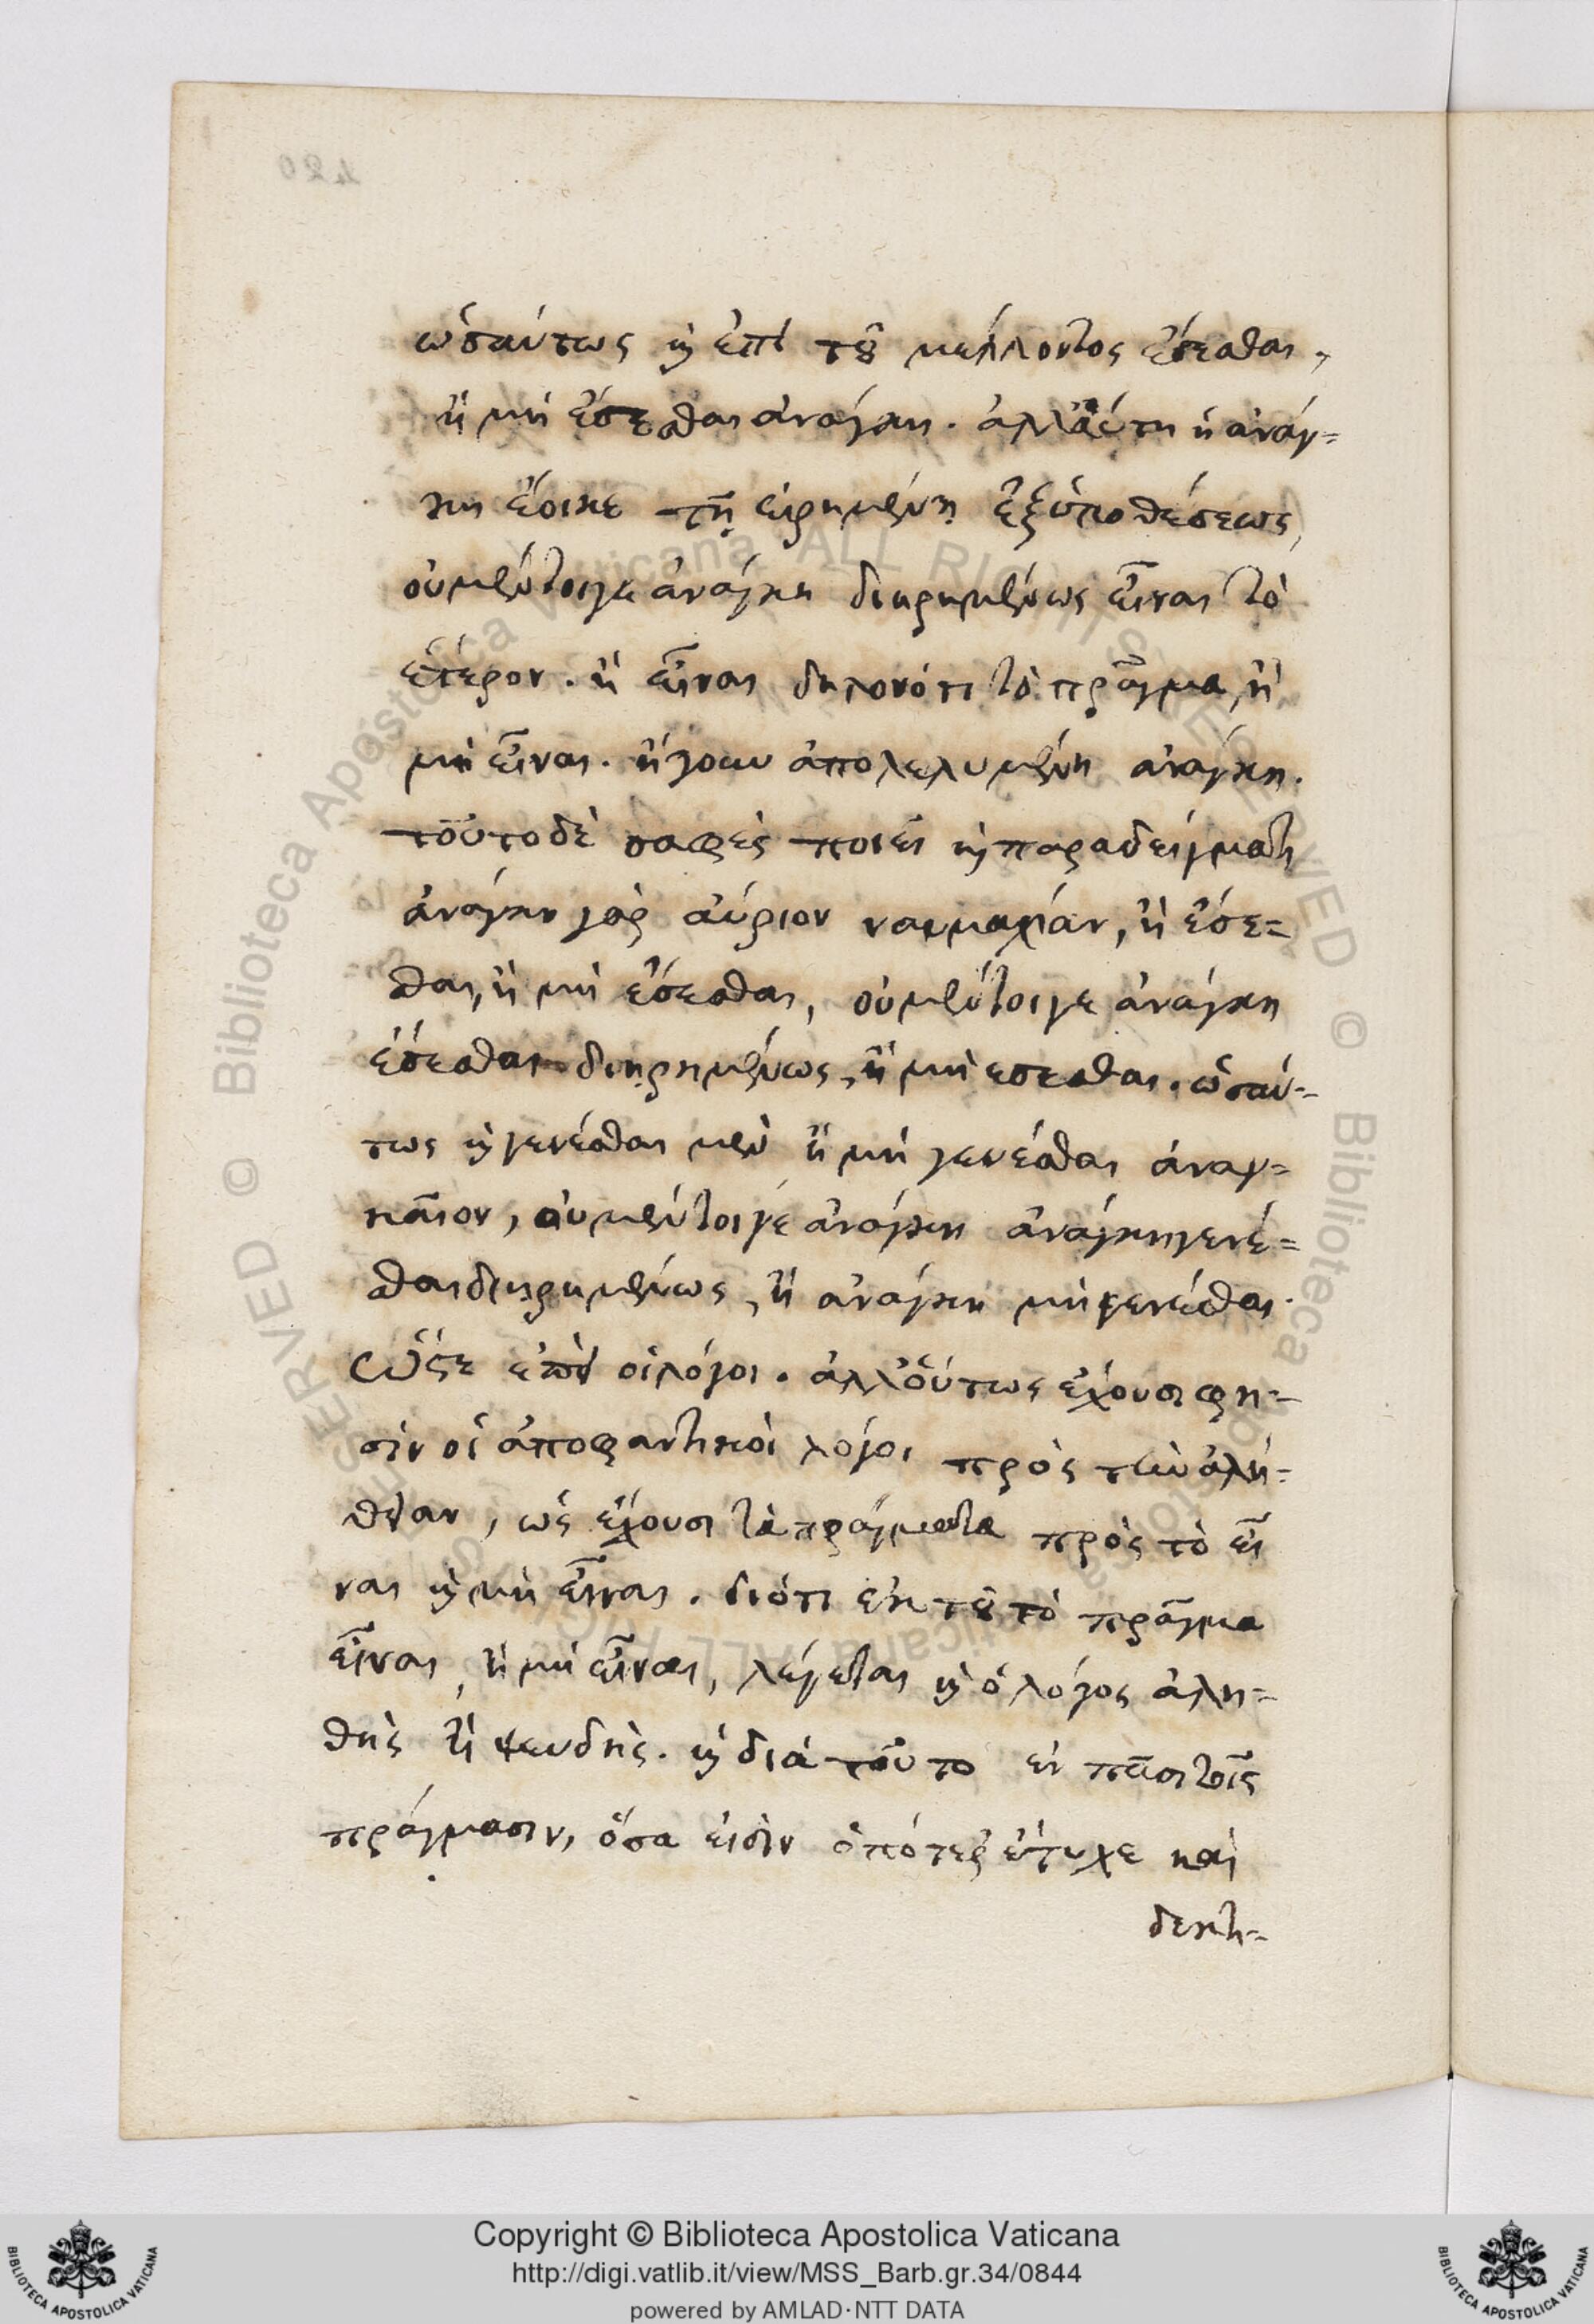 ὡσαύτως καὶ ἐπὶ τοῦ μέλλοντος ἔσεσθαι,
ἢ μὴ ἔσεσθαι ἀνάγκη. ἀλλ' αὕτη ἡ ἀνάγ=
κη ἔοικε τῇ εἰρημένῃ ἐξ ὑποθέσεως,
οὐ μέντοιγε ἀνάγκη διῃρημένως εἶναι τὸ
ἕτερον. ἢ εἶναι δηλονότι τὸ πρᾶγμα, ἢ
μὴ εἶναι. ἤγουν ἀπολελυμένη ἀνάγκη.
τοῦτο δὲ σαφὲς ποιεῖ καὶ παραδείγματι
ἀνάγκη γὰρ αὔριον ναυμαχίαν, ἢ ἔσε=
σθαι, ἢ μὴ ἔσεσθαι, οὐ μέντοιγε ἀνάγκη
ἔσεσθαι διῃρημένως, ἢ μὴ εσεσθαι. ὡσαύ=
τως καὶ γενέσθαι μὲν ἢ μὴ γενέσθαι ἀναγ=
καῖον, οὐ μέντοιγε ἀνάγκη ἀνάγκη γενέ=
σθαι διῃρημένως, ἢ ἀνάγκη μὴ γενέσθαι.
ὥστε ἐπεὶ οἱ λόγοι. ἀλλ' οὕτως ἔχουσι φη=
σὶν οἱ ἀποφαντικοὶ λόγοι πρὸς τὴν ἀλή=
θειαν, ὡς ἔχουσι τὰ πράγματα πρὸς τὸ εἶ
ναι καὶ μὴ εἶναι. διότι ἐκ τοῦ τὸ πρᾶγμα
εἶναι, ἢ μὴ εἶναι, λέγεται καὶ ὁ λόγος ἀλη=
θὴς ἢ ψευδὴς. καὶ διὰ τοῦτο ἐν πᾶσι τοῖς
πράγμασιν, ὅσα εἰσὶν ὁπότερ' ἔτυχε καὶ
δεκτι=
Copyright © Biblioteca Apostolica Vaticana
http://digi.vatlib.it/view/MSS_Barb.gr.34/0844
powered by AMLAD·NTT DATA